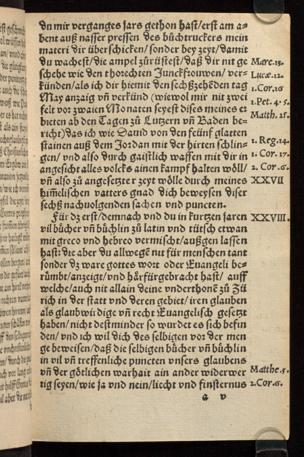 du mir verganges jars gethon hast/erst am a-
bent auß nasser pressen des bůchtruckers mein
materi dir überschicken/sonder bey zeyt/damit
du wachest/die ampel zůrüstest/daß dir nit ge
schehe wie den thorechten Junckfrouwen/ ver-
künden/als ich dir hiemit den sechßzehẽden tag
May anzaig vñ verkünd (wiewol mir nit zwei
felt vor zwaien Monaten seyest dises meines er
bieten ab den Tagen zů Lutzern vñ Baden be-
richt) das ich wie David von den feünf glatten
stainen auß dem Jordan mit der hirten schlin-
gen/ vnd also durch gaistlich waffen mit dir in
angesicht alles volcks ainen kampf halten wöll/
vñ also zů angesetzter zeyt wölle durch meines
himelischen vatters gnad dich beweysen diser
sechß nachuolgenden sachen vnd puncten.
Für dz erst/demnach vnd du in kurtzen jaren
vil bücher vñ büchlin zů latin vnd tütsch etwan
mit greco vnd hebreo vermischt/außgen lassen
hast: die aber du allwegẽ nit für menschen tant
sonder dz ware gottes wort oder Euangeli be-
rümbt/anzeigt/ vnd härfürgebracht hast/ auff
welche/auch nit allain deine vnderthonẽ zů Zü
rich in der statt vnd deren gebiet/iren glauben
als glaubwirdige vñ recht Euangelisch gesetzt
haben/ nicht destminder so wurdet es sich befin
den/vnd ich wil dich des selbigen vor der men
ge beweisen/daß die selbigen bücher vñ büchlin
in vil vñ treffenliche puncten vnsers glaubens
vñ der götlichen warhait ain ander widerwer
tig seyen/wie ja vnd nein/liecht vnd finsternus
a v
Marc. 13.
Luce. 12.
1. Cor. 16
1. Pet. 4. 5.
Matth. 25.
1. Reg. 14.
1. Cor. 17.
2. Cor. 6.
XXVII
XXVIII.
Matthe. 5.
2. Cor. 6.